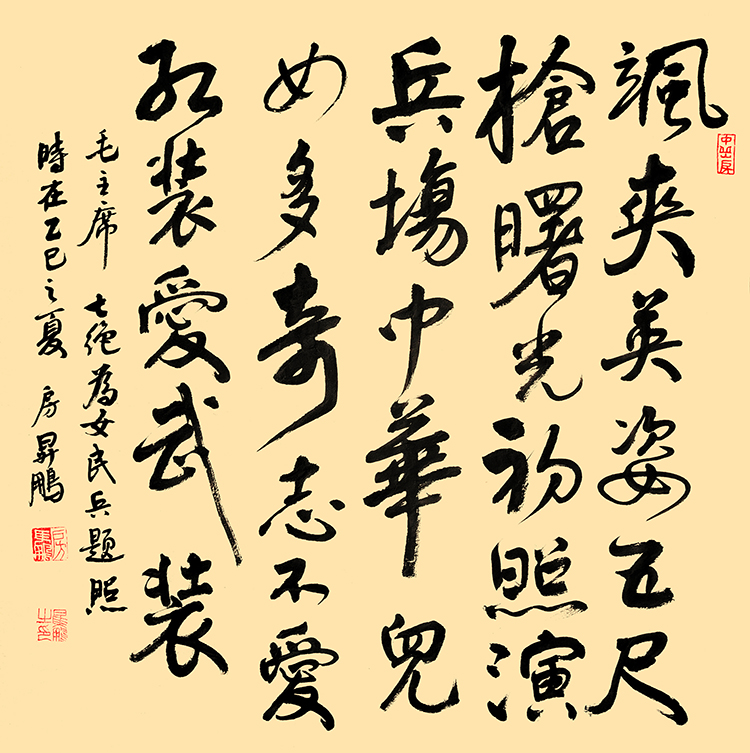 颯爽英姿五尺
槍曙光初照演
兵場中華兒
女多奇志不愛
紅裝愛武裝
毛主席 七絕為女民兵題照
時在乙巳之夏 房昇鵬